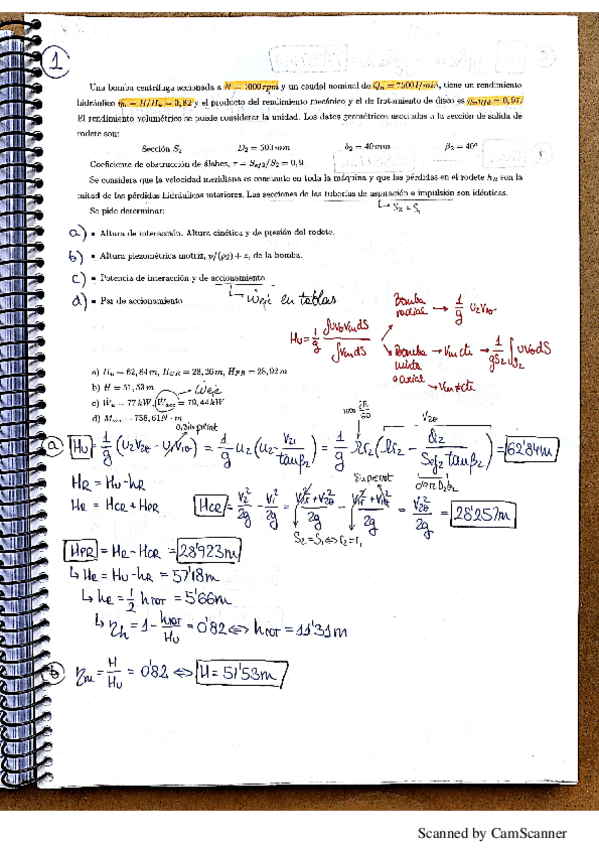 1
Una bomba centrífuga accionada a N = 1000 rpm y un caudal nominal de Qn = 7500 l/min, tiene un rendimiento
hidráulico ηh = H/Hu = 0,82 y el producto del rendimiento mecánico y el de frotamiento de disco es = 0,97.
El rendimiento volumétrico se puede considerar la unidad. Los datos geométricos asociados a la sección de salida de
rodete son:
Sección S2 D2 = 500 mm b2 = 40 mm β2 = 40º
Coeficiente de obstrucción de álabes, τ = Sef2/S2 = 0,9
Se considera que la velocidad meridiana es constante en toda la máquina y que las pérdidas en el rodete hR son la
mitad de las pérdidas hidráulicas interiores. Las secciones de las tuberías de aspiración e impulsión son idénticas.
↳ S2 = S1
Se pide determinar:
a) ▪ Altura de interacción. Altura cinética y de presión del rodete.
b) ▪ Altura piezométrica motriz, p/(ρg) + z, de la bomba.
c) ▪ Potencia de interacción y de accionamiento
↳ Weje en tablas
d) ▪ Par de accionamiento
Hu = 1/g ∫uvθvmdS / ∫vmdS
Bomba radial → 1/g u2v2θ
Bomba mixta o axial → vm cte → 1/gS2 ∫S2 uvθdS
→ vm≠cte
a) Hu = 62,84 m, HCR = 28,26 m, HPR = 28,92 m
b) H = 51,53 m
Weje
c) Wu = 77 kW, Wacc = 79,44 kW
d) Macc = 758,61 N · m
a) Hu = 1/g (u2v2θ - u1v1θ) = 1/g u2(u2 - v2r/tanβ2) = 1/g Ωr2(Ωr2 - Q2/(Sef2 tanβ2)) = 62'84m
HR = Hu - hR
HR = HCR + HPR
HCR = v2²/2g - v1²/2g = (v2r² + v2θ²)/2g - (v1r² + v1θ²)/2g = v2θ²/2g = 28'257m
HPR = HR - HCR = 28'923m
↳ HR = Hu - hR = 57'18m
↳ hR = 1/2 hTOT = 5'66m
↳ ηh = 1 - hTOT/Hu = 0'82 ⇔ hTOT = 11'31m
b) ηm = H/Hu = 0'82 ⇔ H = 51'53m
Scanned by CamScanner